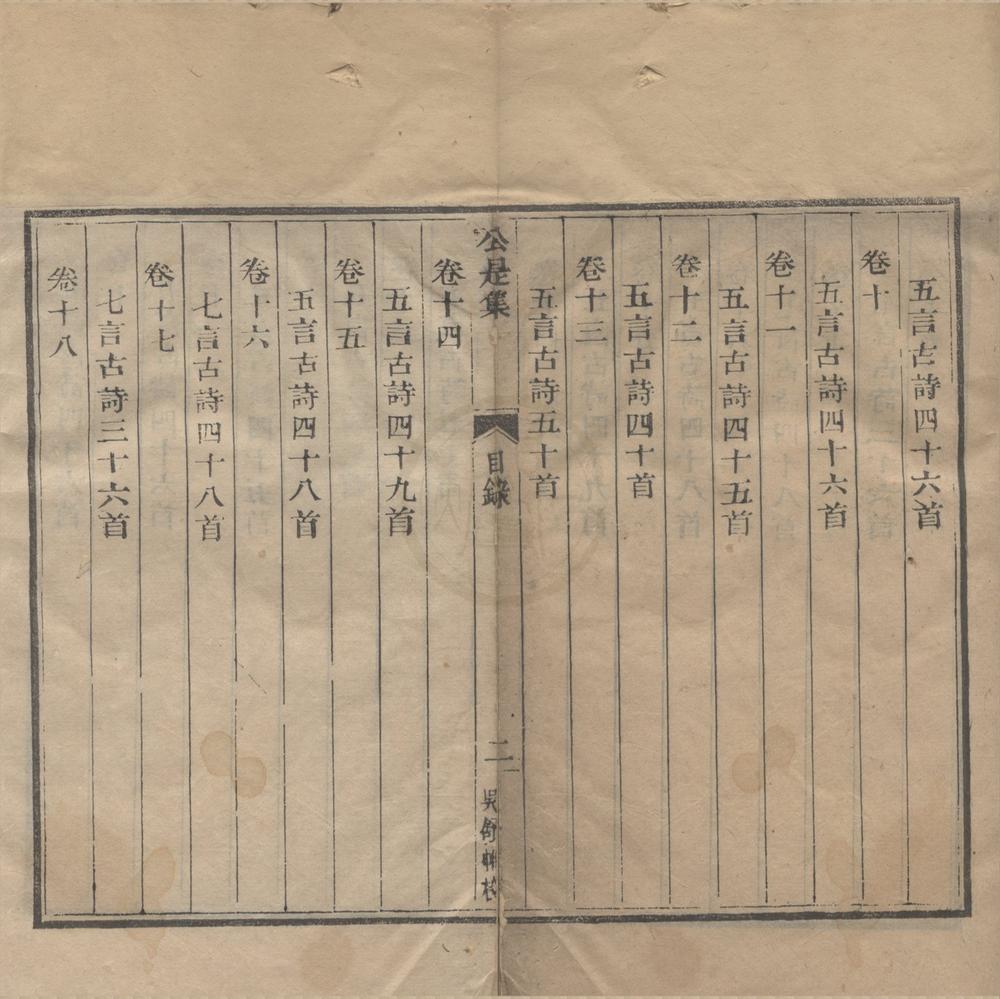 五言古詩四十六首
卷十
五言古詩四十六首
卷十一
五言古詩四十五首
卷十二
五言古詩四十首
卷十三
五言古詩五十首
公是集
目錄
二
卷十四
五言古詩四十九首
卷十五
五言古詩四十八首
卷十六
七言古詩四十八首
卷十七
七言古詩三十六首
卷十八